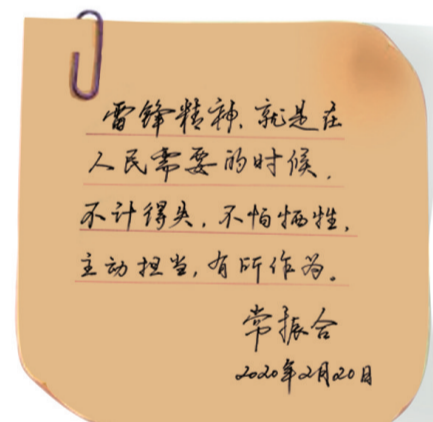 雷锋精神、就是在
人民需要的时候，
不计得失，不怕牺牲，
主动担当，有所作为。
常振合
2020年2月20日